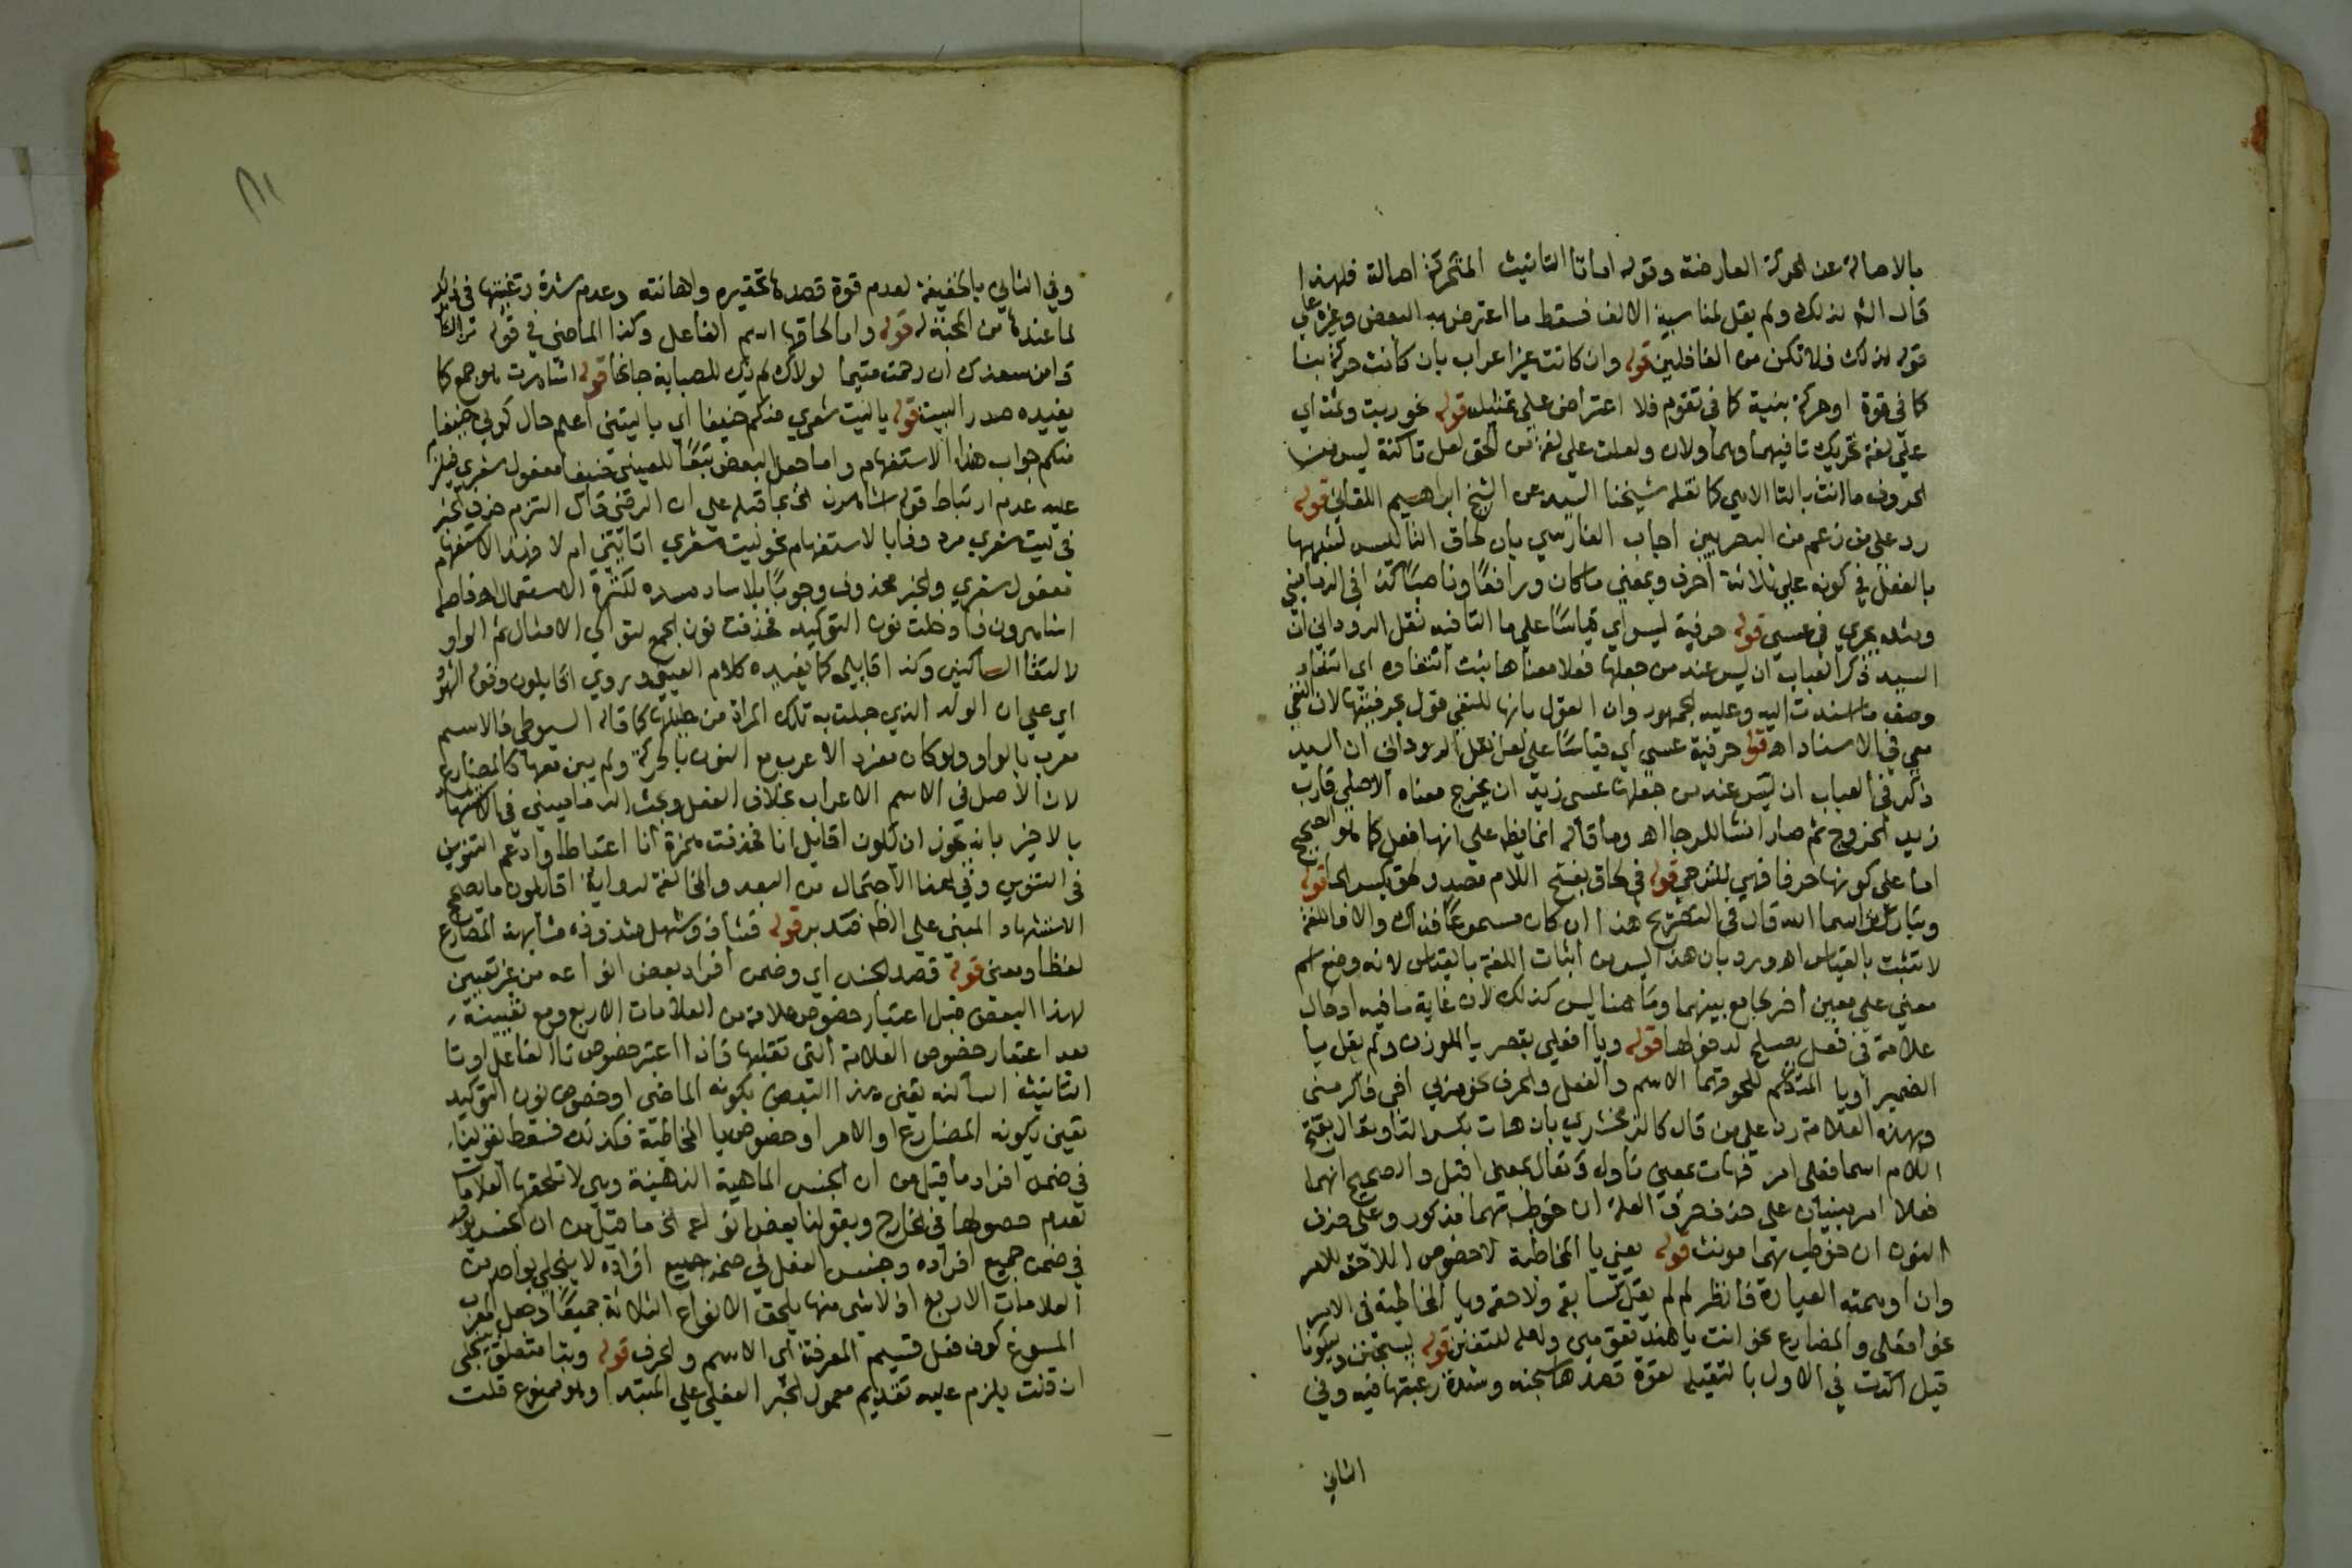 بالاصالة عن الحركة العارضة وقوله اما تا التانيث المتحركة اصالة فلهذا
قال الشه لذلك ولم يقل لمناسبة الالف فسقط ما اعترض به البعض وغيره علي
قوله لذلك فلا تكن من الغافلين قوله وان كانت غير اعراب بان كانت حركة بنا
كما في قوة او حركة بنية كما في تقوم فلا اعتراض علي تمثيله قوله نحو ربت وثمت اي
علي لغة تحريك تا فيهما وهما ولات ولعلت علي لغة من الحق لعل تا كنة ليس من
الحروف ما انث بالتا الا هي كما نقله شيخنا السيد عن الشيخ ابراهيم اللقاني قوله
رد علي من زعم من البصريين اجاب الفارسي بان لحاق التا لليس لشبهها
بالفعل في كونه علي ثلاثة احرف وبمعني ما كان ورافعا وناصبا كذا في الدماميني
ومثله يجري في عسي قوله حرفية ليس اي قياسا علي ما التا فيه نقل الروداني ان
السيد ذكر في العباب ان ليس عند من جعلها فعلا معناها ثبت انتفاوه اي انتفا
وصف ما اسندت اليه وعليه الجمهور وان القول بانها للنفي قول بحرفيتها لان النفي
معي في الاسناد اهـ قوله حرفية عسي اي قياسا علي لعل نقل الروداني ان السيد
ذكر في العباب ان ليس عند من جعلها عسي زيد ان يخرج معناه الاصلي قارب
زيد الخروج ثم صار انشا للرجا اهـ وما قاله انما يظهر علي انها فعل كما هو الصحيح
اما علي كونها حرفا فهي للترجي قوله في لحاق بفتح اللام مصدر لحق بكسر الحا قوله
وتباركت اسما الله قال في التصريح هذا ان كان مسموعا فذاك والا فاللغة
لا تثبت بالقياس اهـ ورد بان هذا ليس من اثبات اللغة بالقياس لانه وضع اسم
معني علي معين اخر لجامع بينهما وما هنا ليس كذلك لان غاية ما فيه ادخال
علامة في فعل يصلح لدخولها قوله ويا افعلي بقصر يا للوزن ولم يقل يا
الضمير او يا المتكلم للحوقهما الاسم والفعل والحرف نحو مر بي اخي فاكرمني
وبهذه العلامة رد علي من قال كالزمخشري بان هات بكسر التا وتعال بفتح
اللام اسما فعلي امر فهات بمعني ناول وتعال بمعني اقبل والصحيح انهما
فعلا امر مبنيان علي حذف حرف العلة ان خوطب بهما مذكر وعلي حذف
النون ان خوطب بهما مونث قوله يعني يا المخاطبة لا خصوص اللاحق للامر
وان اوهمته العبارة فانظر لم لم يقل كسابقه ولاحقه ويا المخاطبة في الامر
نحو افعلي والمضارع نحو انت يا هند تقومين ولعله للتفنن قوله ليسجنن وليكونا
قيل اكدت في الاول بالثقيلة لقوة قصدها سجنه وشدة رغبتها فيه وفي
الثاني
وفي الثاني بالخفيفة لعدم قوة قصدها تحقيره واهانته وعدم شدة رغبتها في ذلك
لما عندها من المحبة له قوله واما لحاقها اسم الفاعل وكذا الماضي في قوله
دامن سعدك ان رحمت متيما لولاك لم يك للصبابة جانحا قوله اشاهرت هو جمع كما
يفيده صدر البيت قوله يا ليت شعري منكم حنيفا اي يا ليتني اعلم حال كوني حنيفا
منكم جواب هذا الاستفهام واما جعل البعض تبعا للعيني حنيفا مفعول شعري فيلزم
عليه عدم ارتباط قوله اشاهرن الخ بما قبله علي ان الرضي قال التزم حذف الخبر
في ليت شعري مردوفا بالاستفهام نحو ليت شعري اتاتيني ام لا فهذا الاستفهام
مفعول شعري والخبر محذوف وجوبا بلا ساد مسده لكثرة الاستعمال اهـ فاصل
اشاهرن ادخلت نون التوكيد فحذفت نون الجمع لتوالي الامثال ثم الواو
لالتقا الساكنين وكذا اقايلن كما يفيده كلام العيني وروي اقايلون وقوله الشهود
اي علي ان الولد الذي حبلت به تلك المراة من حليلها كما قاله السيوطي فالاسم
معرب بالواو ولو كان مفردا لاعرب مع النون بالحركة ولم يبن معها كالمضارع
لان الاصل في الاسم الاعراب بخلاف الفعل وبحث الدماميني في الاستشهاد
بالاخير بانه يجوز ان يكون اقايل انا فحذفت همزة انا اعتباطا وادغم التنوين
في النون وفي هذا الاحتمال من البعد والمخالفة لرواية اقايلون ما يصحح
الاستشهاد المبني علي الظ فتدبر قوله فشاذ وسهل شذوذه مشابهته المضارع
لفظا ومعني قوله قصد الجنس اي وضمن افراد بعض انواعه من غير تعيين
لهذا البعض قبل اعتبار خصوص علامة من العلامات الاربع ومع تعيينه
بعد اعتبار خصوص العلامة التي تقبلها فاذا اعتبر خصوص تا الفاعل او تا
التانيث الساكنة تعين هذا البعض بكونه الماضي او خصوص نون التوكيد
تعين بكونه المضارع او الامر او خصوص يا المخاطبة فكذلك فسقط بقولنا
في ضمن افراد ما قيل من ان الجنس الماهية الذهنية وهي لا تلحقها العلامات
لعدم حصولها في الخارج وبقولنا بعض انواعه الخ ما قيل من ان الجنس يوجد
في ضمن جميع افراده وجنس الفعل في ضمن جميع افراده لا ينجلي بواحد من
العلامات الاربع اذ لا شي منها يلحق الانواع الثلاثة جميعا
المسوغ كون فعل قسيم المعرفة اي الاسم والحرف قوله وبتا متعلق بينجلي
ان قلت يلزم عليه تقديم معمول الخبر الفعلي علي المبتدا وهو ممنوع قلت